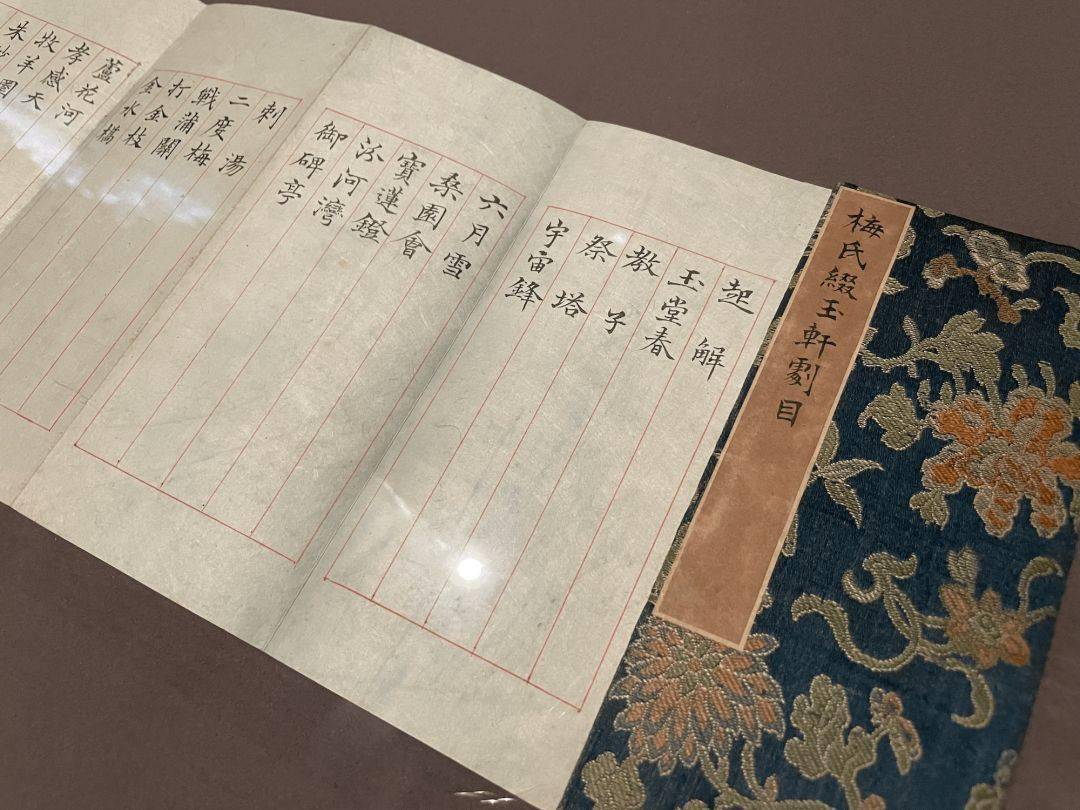 梅氏綴玉軒劇目
起解
玉堂春
教子
祭塔
宇宙鋒
六月雪
桑園會
寶蓮鐙
汾河灣
御碑亭
刺湯
二度梅
戦蒲關
打金枝
金水橋
蘆花河
孝感天
牧羊圈
朱